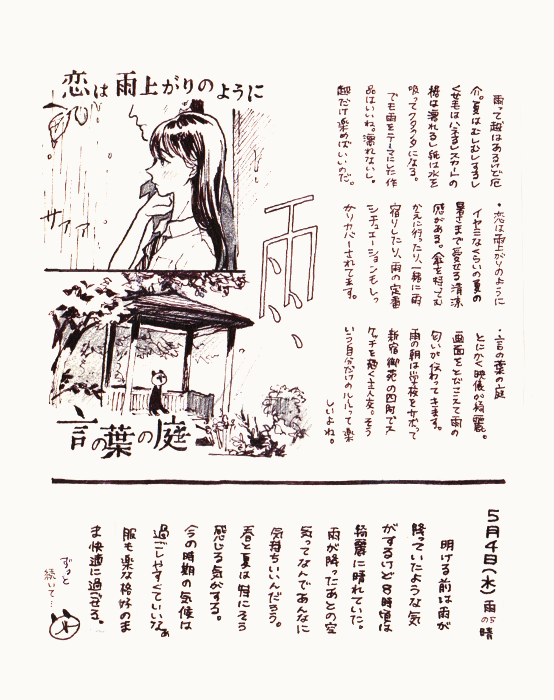 恋は雨上がりのように
サアァ
言の葉の庭
雨、
雨って趣はあるけど厄
介。夏はむしむしするし
くせ毛はハネるしスカートの
裾は濡れるし紙は水を
吸ってクタクタになる。
でも雨をテーマにした作
品はいいね。濡れないし。
趣だけ楽めばいいのだ。
・恋は雨上がりのように
イヤミなくらいの夏の
暑さまで愛せる清涼
感がある。傘を持ってむ
かえに行ったり、一緒に雨
宿りしたり、雨の定番
シチュエーションもしっ
かりカバーされてます。
・言の葉の庭
とにかく映像が綺麗。
画面をとびこえて雨の
匂いが伝わってきます。
雨の朝は学校をサボって
新宿御苑の四阿でス
ケッチを描く主人公。そう
いう自分だけのルールって楽
しいよね。
5月4日(水)雨のち晴
明ける前は雨が
降っていたような気
がするけど8時頃は
綺麗に晴れていた。
雨が降ったあとの空
気ってなんであんなに
気持ちいいんだろう。
春と夏は特にそう
感じる気がする。
今の時期の気候は
過ごしやすくていいなぁ
服も楽な格好のま
ま快適に過ごせる。
ずっと
続いて…